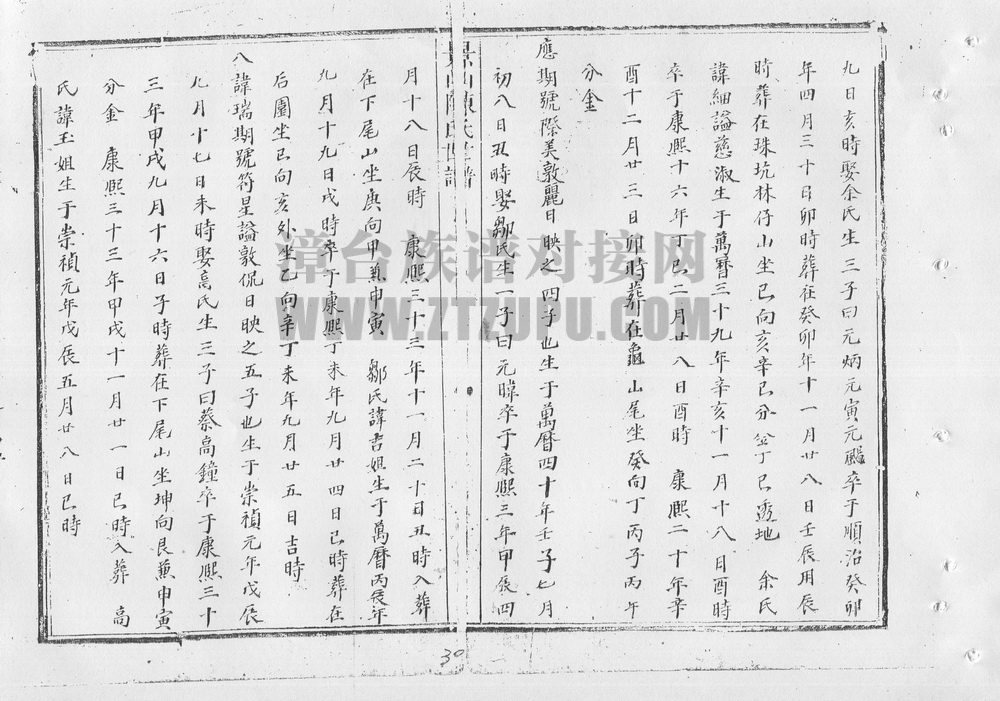 九日亥時娶余氏生三子曰元炳元寅元颺卒于順治癸卯
年四月三十日卯時葬在癸卯年十一月廿八日壬辰用辰
時葬在珠坑林仔山坐巳向亥辛巳分金丁巳透地 余氏
諱細謚慈淑生于萬曆三十九年辛亥十一月十八日酉時
卒于康熙十六年丁巳二月廿八日酉時 康熙二十年辛
酉十二月廿三日卯時葬在龜山尾坐癸向丁丙子丙午
分金
應期號際美敦麗日映之四子也生于萬曆四十年壬子七月
初八日丑時娶鄒氏生一子曰元暐卒于康熙三年甲辰四
景山陳氏世譜
月十八日辰時 康熙三十三年十一月二十日丑時入葬
在下尾山坐庚向甲兼申寅 鄒氏諱吉姐生于萬曆丙辰年
九月十九日戌時卒于康熙丁未年九月廿四日巳時葬在
后圍坐巳向亥外坐乙向辛丁未年九月廿五日吉時
八諱瑞期號符星謚敦侃日映之五子也生于崇禎元年戊辰
九月十七日未時娶高氏生三子曰蔡高鐘卒于康熙三十
三年甲戌九月十六日子時葬在下尾山坐坤向艮兼申寅
分金 康熙三十三年甲戌十一月廿一日巳時入葬 高
氏諱玉姐生于崇禎元年戊辰五月廿八日巳時
30
漳台族谱对接网
WWW.ZTZUPU.COM